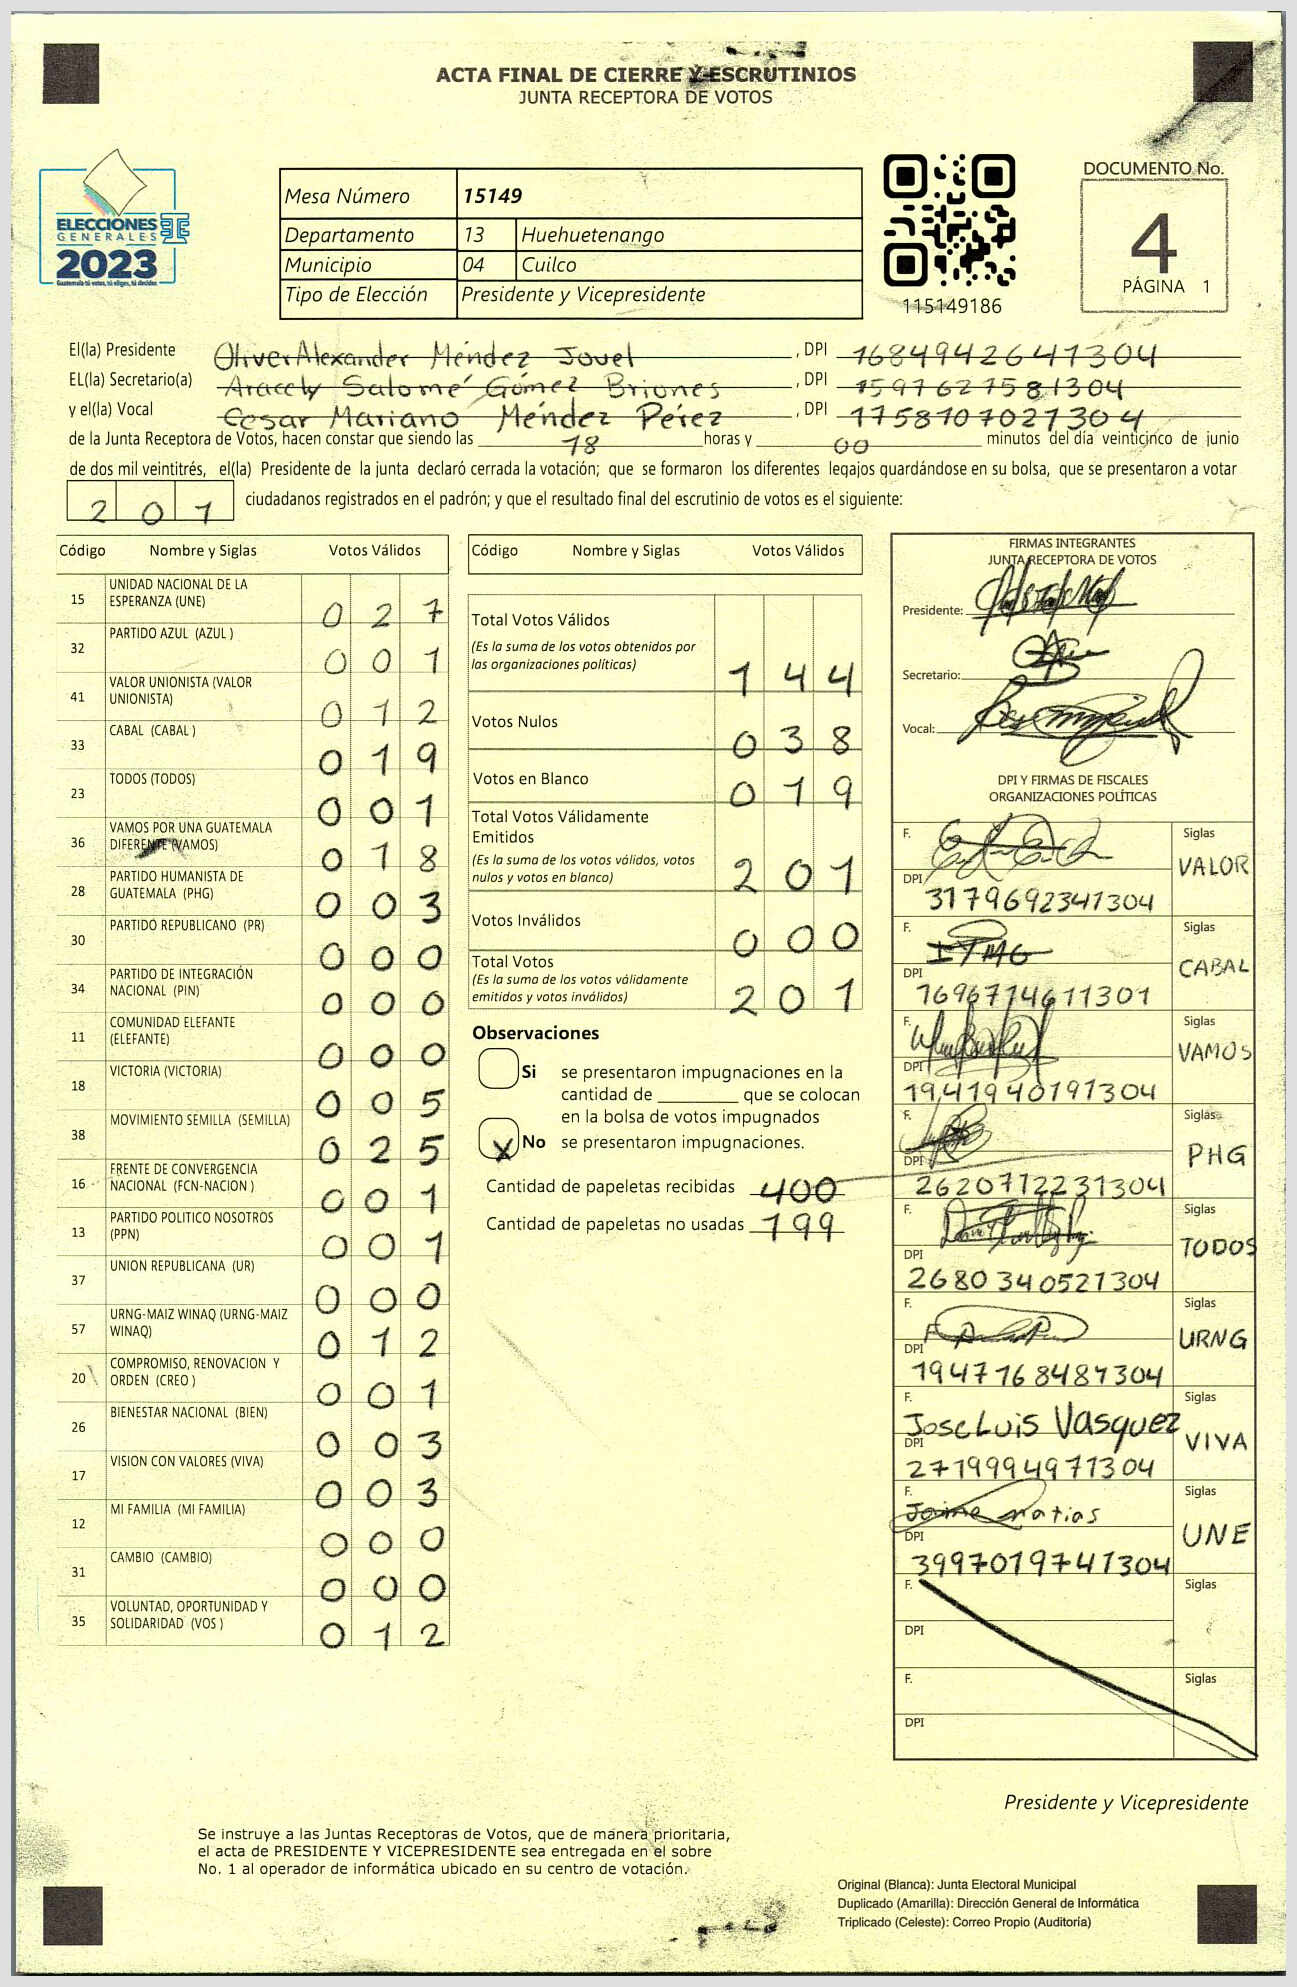 ACTA FINAL DE CIERRE Y ESCRUTINIOS
JUNTA RECEPTORA DE VOTOS
ELECCIONES
GENERALES
2023
Guatemala tú votas, tú eliges, tú decides
Mesa Número 15149
Departamento 13 Huehuetenango
Municipio 04 Cuilco
Tipo de Elección Presidente y Vicepresidente
115149186
DOCUMENTO No.
4
PÁGINA 1
El(la) Presidente Oliver Alexander Méndez Jovel , DPI 1684942641304
EL(la) Secretario(a) Aracely Salomé Gómez Briones , DPI 1597627581304
y el(la) Vocal Cesar Mariano Méndez Pérez , DPI 1758707021304
de la Junta Receptora de Votos, hacen constar que siendo las 18 horas y 00 minutos del día veinticinco de junio
de dos mil veintitrés, el(la) Presidente de la junta declaró cerrada la votación; que se formaron los diferentes legajos guardándose en su bolsa, que se presentaron a votar
201 ciudadanos registrados en el padrón; y que el resultado final del escrutinio de votos es el siguiente:
Código Nombre y Siglas Votos Válidos
15 UNIDAD NACIONAL DE LA ESPERANZA (UNE) 027
32 PARTIDO AZUL (AZUL ) 001
41 VALOR UNIONISTA (VALOR UNIONISTA) 012
33 CABAL (CABAL ) 019
23 TODOS (TODOS) 001
36 VAMOS POR UNA GUATEMALA DIFERENTE (VAMOS) 018
28 PARTIDO HUMANISTA DE GUATEMALA (PHG) 003
30 PARTIDO REPUBLICANO (PR) 000
34 PARTIDO DE INTEGRACIÓN NACIONAL (PIN) 000
11 COMUNIDAD ELEFANTE (ELEFANTE) 000
18 VICTORIA (VICTORIA) 005
38 MOVIMIENTO SEMILLA (SEMILLA) 025
16 FRENTE DE CONVERGENCIA NACIONAL (FCN-NACION ) 001
13 PARTIDO POLITICO NOSOTROS (PPN) 001
37 UNION REPUBLICANA (UR) 000
57 URNG-MAIZ WINAQ (URNG-MAIZ WINAQ) 012
20 COMPROMISO, RENOVACION Y ORDEN (CREO ) 001
26 BIENESTAR NACIONAL (BIEN) 003
17 VISION CON VALORES (VIVA) 003
12 MI FAMILIA (MI FAMILIA) 000
31 CAMBIO (CAMBIO) 000
35 VOLUNTAD, OPORTUNIDAD Y SOLIDARIDAD (VOS ) 012
Código Nombre y Siglas Votos Válidos
Total Votos Válidos
(Es la suma de los votos obtenidos por
las organizaciones políticas) 144
Votos Nulos 038
Votos en Blanco 019
Total Votos Válidamente
Emitidos
(Es la suma de los votos válidos, votos
nulos y votos en blanco) 201
Votos Inválidos 000
Total Votos
(Es la suma de los votos válidamente
emitidos y votos inválidos) 201
Observaciones
Si se presentaron impugnaciones en la
cantidad de ________ que se colocan
en la bolsa de votos impugnados
X No se presentaron impugnaciones.
Cantidad de papeletas recibidas 400
Cantidad de papeletas no usadas 199
FIRMAS INTEGRANTES
JUNTA RECEPTORA DE VOTOS
Presidente:
Secretario:
Vocal:
DPI Y FIRMAS DE FISCALES
ORGANIZACIONES POLÍTICAS
F. Siglas VALOR
DPI 3179692341304
F. Siglas CABAL
DPI 1696774611301
F. Siglas VAMOS
DPI 1941940191304
F. Siglas PHG
DPI 2620712231304
F. Siglas TODOS
DPI 2680340521304
F. Siglas URNG
DPI 1947168481304
F. Jose Luis Vasquez Siglas VIVA
DPI 2719994971304
F. Jaime matias Siglas UNE
DPI 3997019741304
F. Siglas
DPI
F. Siglas
DPI
Presidente y Vicepresidente
Se instruye a las Juntas Receptoras de Votos, que de manera prioritaria,
el acta de PRESIDENTE Y VICEPRESIDENTE sea entregada en el sobre
No. 1 al operador de informática ubicado en su centro de votación.
Original (Blanca): Junta Electoral Municipal
Duplicado (Amarilla): Dirección General de Informática
Triplicado (Celeste): Correo Propio (Auditoría)